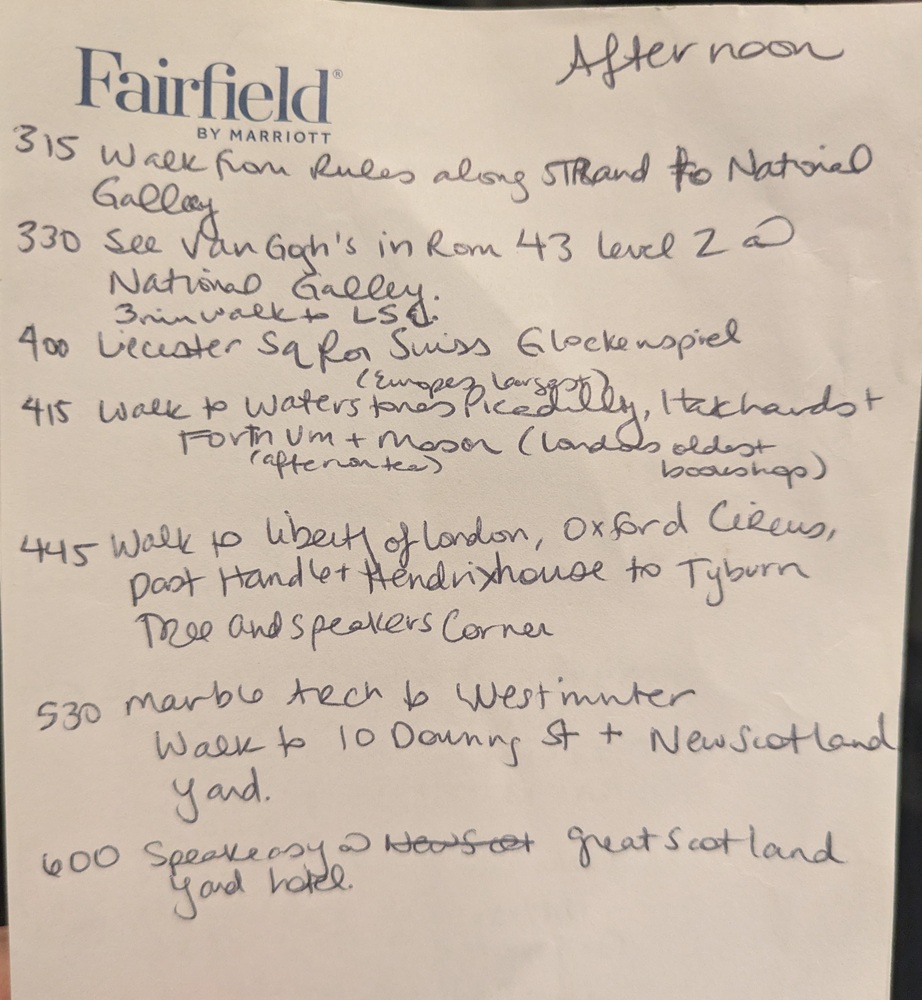 Afternoon
Fairfield®
BY MARRIOTT
315 Walk from Rules along STRand to National
Galley
330 See Van Gogh's in Rom 43 level 2 @
National Galley.
3min walk to LSQ.
400 Liecester Sq for Swiss Glockenspiel
(Europes largest)
415 Walk to Waterstones Picadilly, Hatchards +
Fortnum + Mason (londons oldest
(afternon tea) bookshop)
445 Walk to liberty of london, Oxford Circus,
past Handle + Hendrix house to Tyburn
Tree and speakers Corner
530 Marble Arch to Westminter
Walk to 10 Downing St + New Scotland
yard.
600 Speakeasy @ New Scot great Scotland
yard hotel.